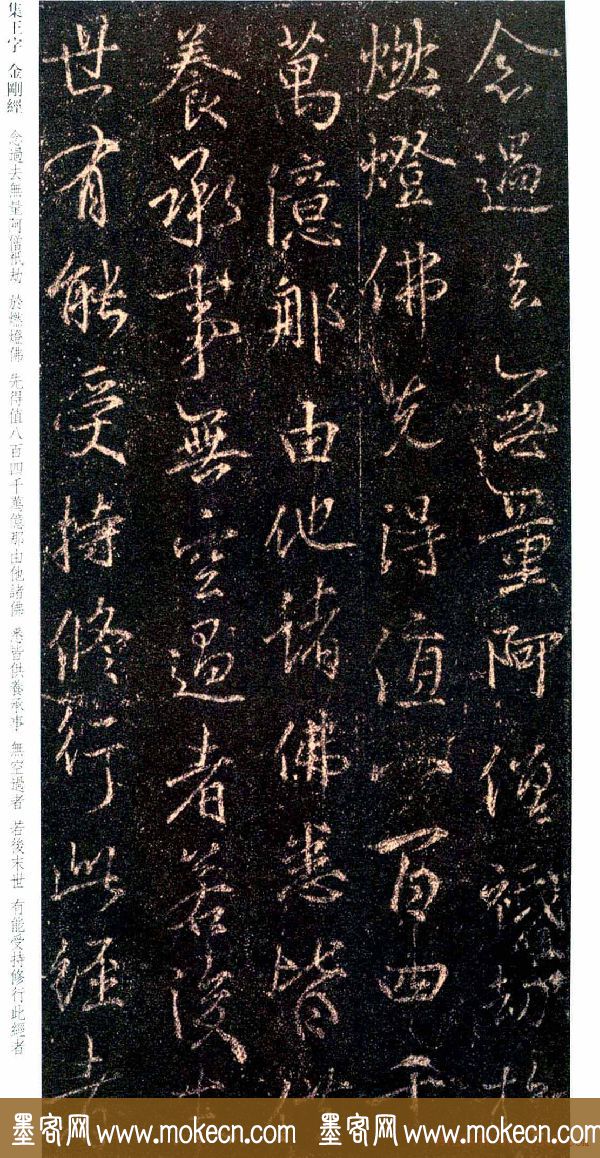 念過去無量阿僧祇劫於
燃燈佛先得值八百四千
萬億那由他諸佛悉皆供
養承事無空過者若後末
世有能受持修行此經者
集王字 金剛經 念過去無量阿僧祇劫 於燃燈佛 先得值八百四千萬億那由他諸佛 悉皆供養承事 無空過者 若後末世 有能受持修行此經者
墨客网 www.mokecn.com 墨客网 www.mokecn.com